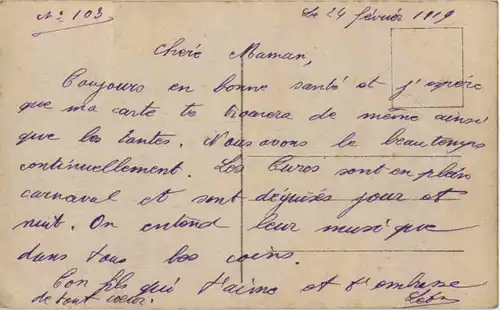 Nº 103
Le 24 février 1919
Chère Maman,
Toujours en bonne santé et j'espère
que ma carte te trouvera de même ainsi
que les tantes. Nous avons le beau temps
continuellement. Les Turcs sont en plein
carnaval et sont déguisés jour et
nuit. On entend leur musique
dans tous les coins.
Ton fils qui t'aime et t'embrasse
de tout cœur.